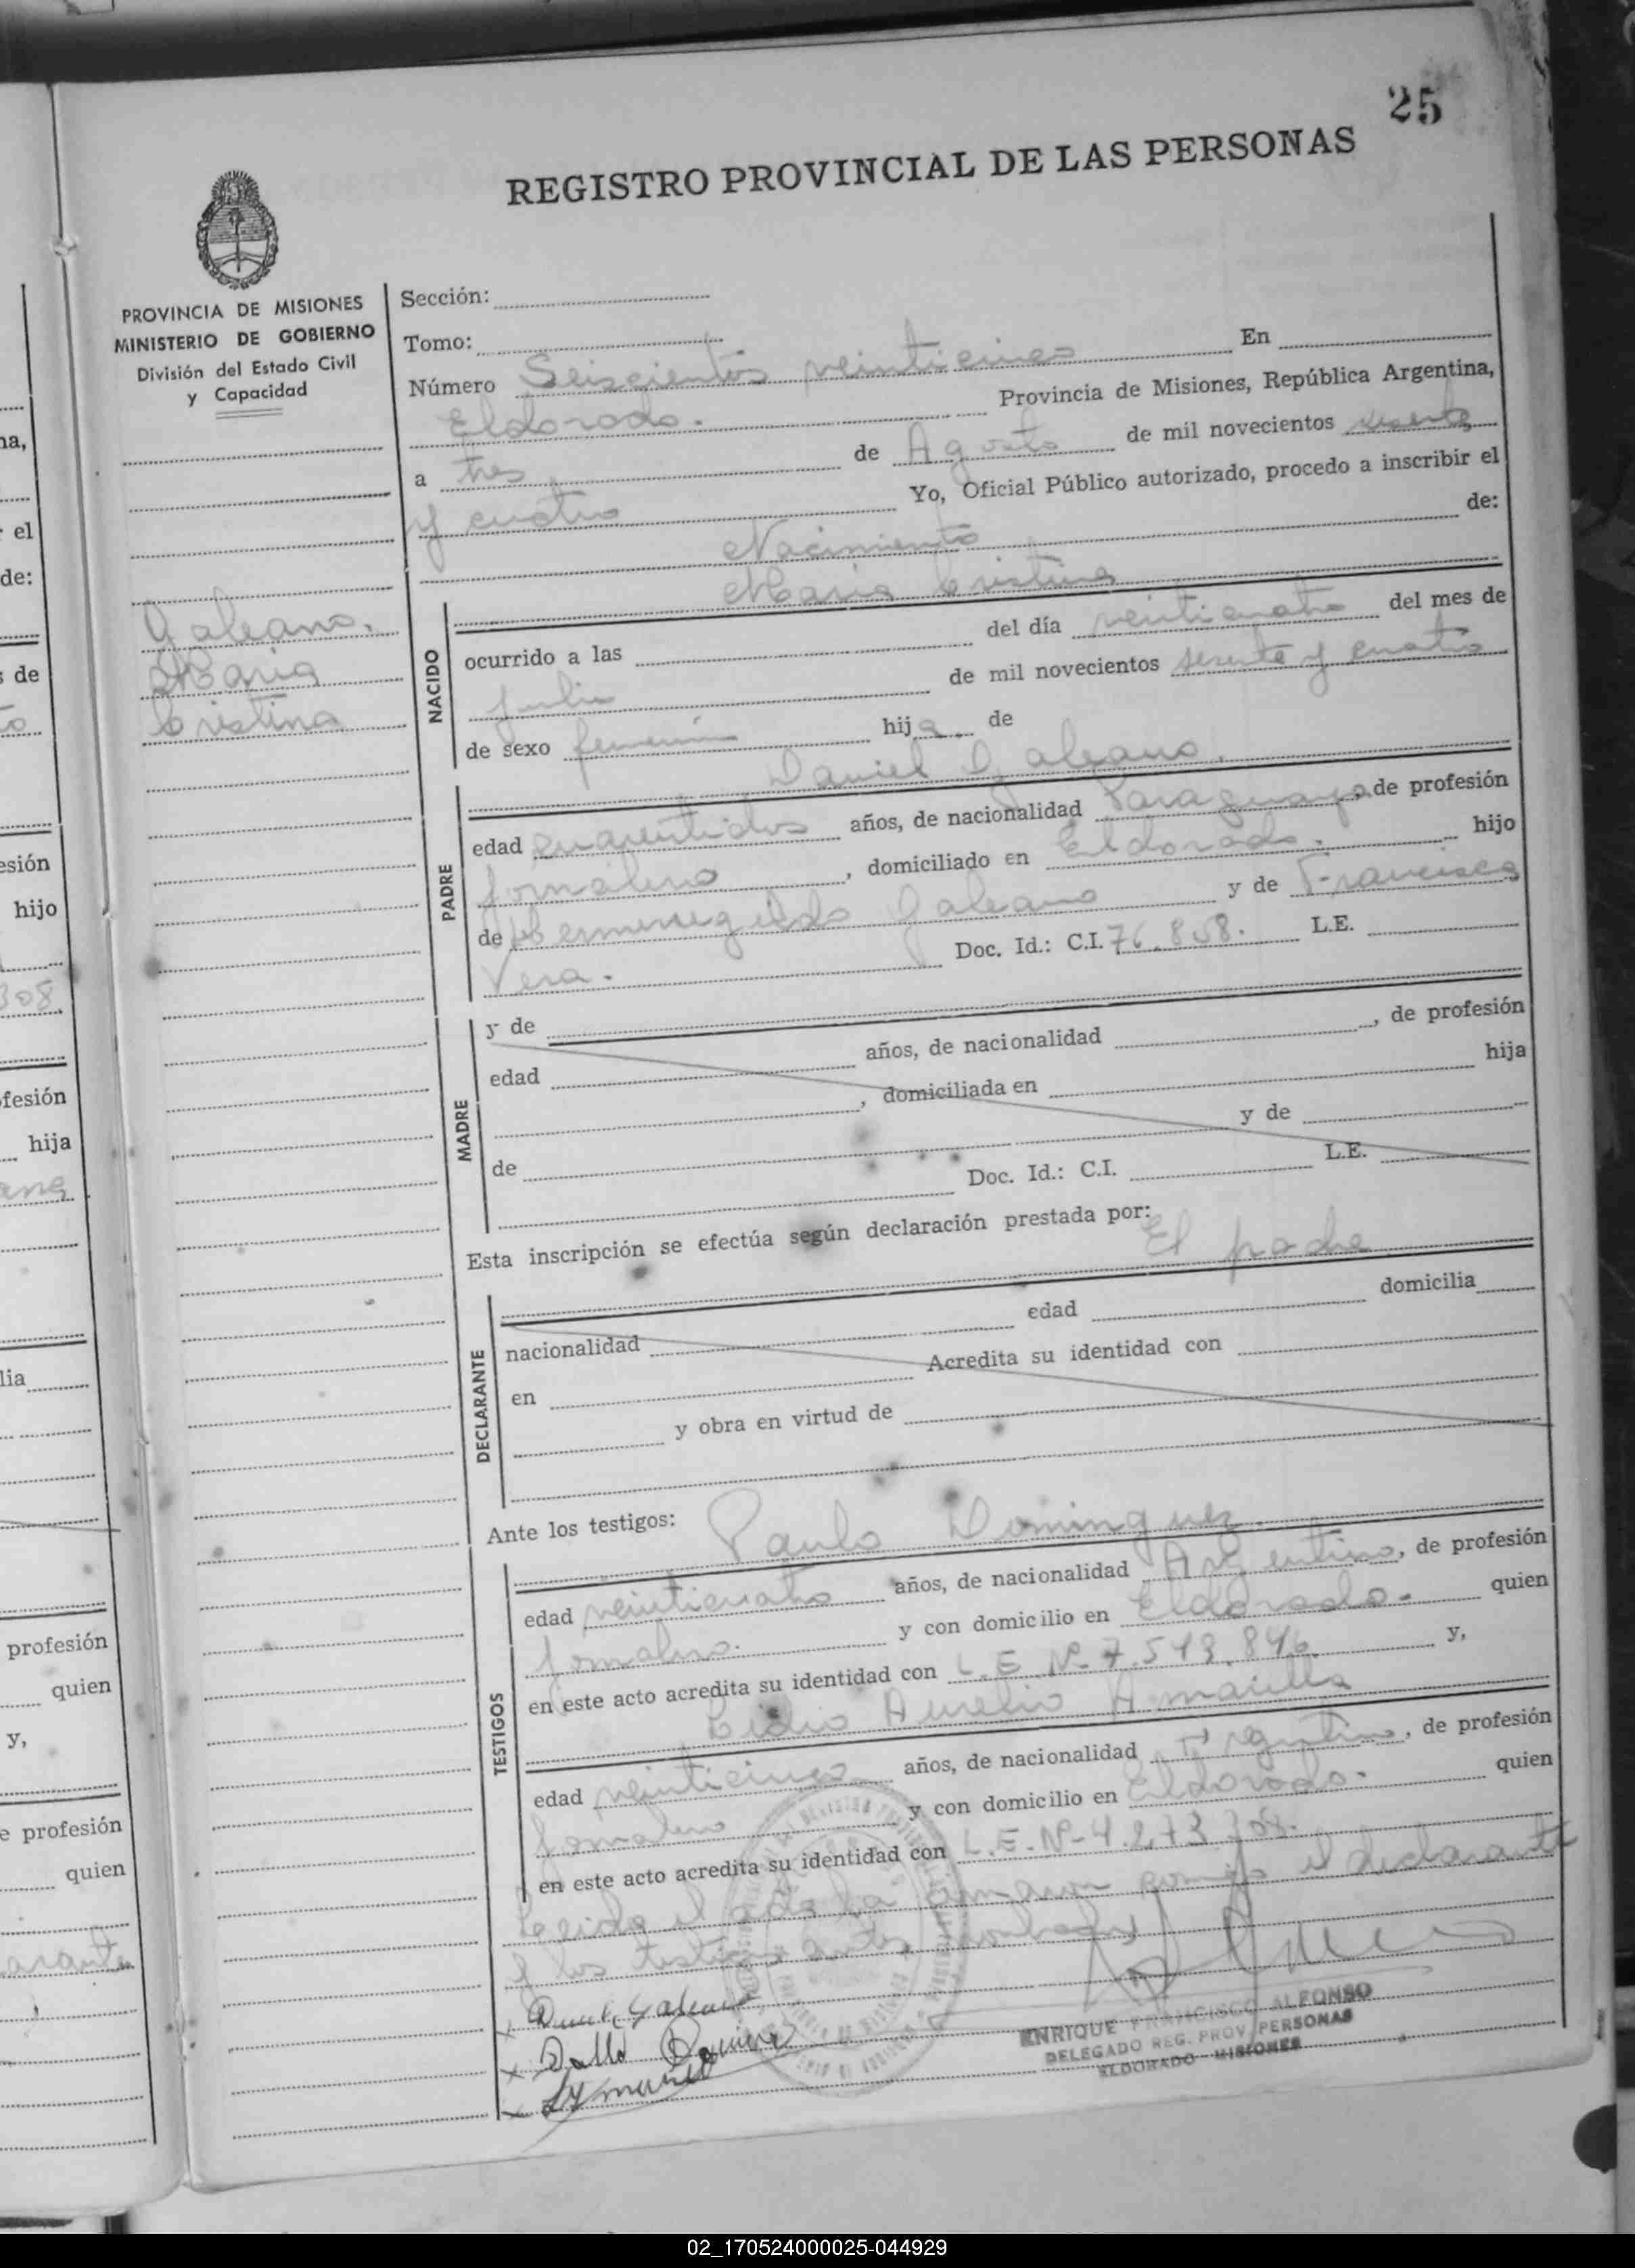 25
REGISTRO PROVINCIAL DE LAS PERSONAS
PROVINCIA DE MISIONES
MINISTERIO DE GOBIERNO
División del Estado Civil
y Capacidad
Galeano.
Maria
Cristina
Sección:
Tomo:
Número Seiscientos veinticinco En
Eldorado. Provincia de Misiones, República Argentina,
a tres de Agosto de mil novecientos sesenta
y cuatro Yo, Oficial Público autorizado, procedo a inscribir el
Nacimiento de:
Maria Cristina
NACIDO
ocurrido a las del día veinticuatro del mes de
Julio de mil novecientos sesenta y cuatro
de sexo femenino hija de
Daniel Galeano.
PADRE
edad cuarentidos años, de nacionalidad Paraguaya, de profesión
jornalero, domiciliado en Eldorado. hijo
de Hermenegildo Galeano y de Francisca
Vera. Doc. Id.: C.I. 76.858. L.E.
MADRE
y de
edad años, de nacionalidad , de profesión
, domiciliada en hija
de y de
Doc. Id.: C.I. L.E.
Esta inscripción se efectúa según declaración prestada por:
El padre
DECLARANTE
nacionalidad edad domicilia
en Acredita su identidad con
y obra en virtud de
Ante los testigos: Paulo Dominguez.
TESTIGOS
edad veinticuatro años, de nacionalidad Argentino, de profesión
jornalero. y con domicilio en Eldorado. quien
en este acto acredita su identidad con L.E. Nº 7.513.846. y,
Lidio Aurelio Amarilla
edad veinticinco años, de nacionalidad Argentino, de profesión
jornalero y con domicilio en Eldorado. quien
en este acto acredita su identidad con L.E. Nº 4.273.308.
Leida el acta la firmaron conmigo el declarante
y los testigos antes nombrados
ENRIQUE FRANCISCO ALFONSO
DELEGADO REG. PROV. PERSONAS
ELDORADO - MISIONES
na,
el
de:
de
esión
hijo
308
fesión
hija
lia
profesión
quien
y,
e profesión
quien
arante
02_170524000025-044929